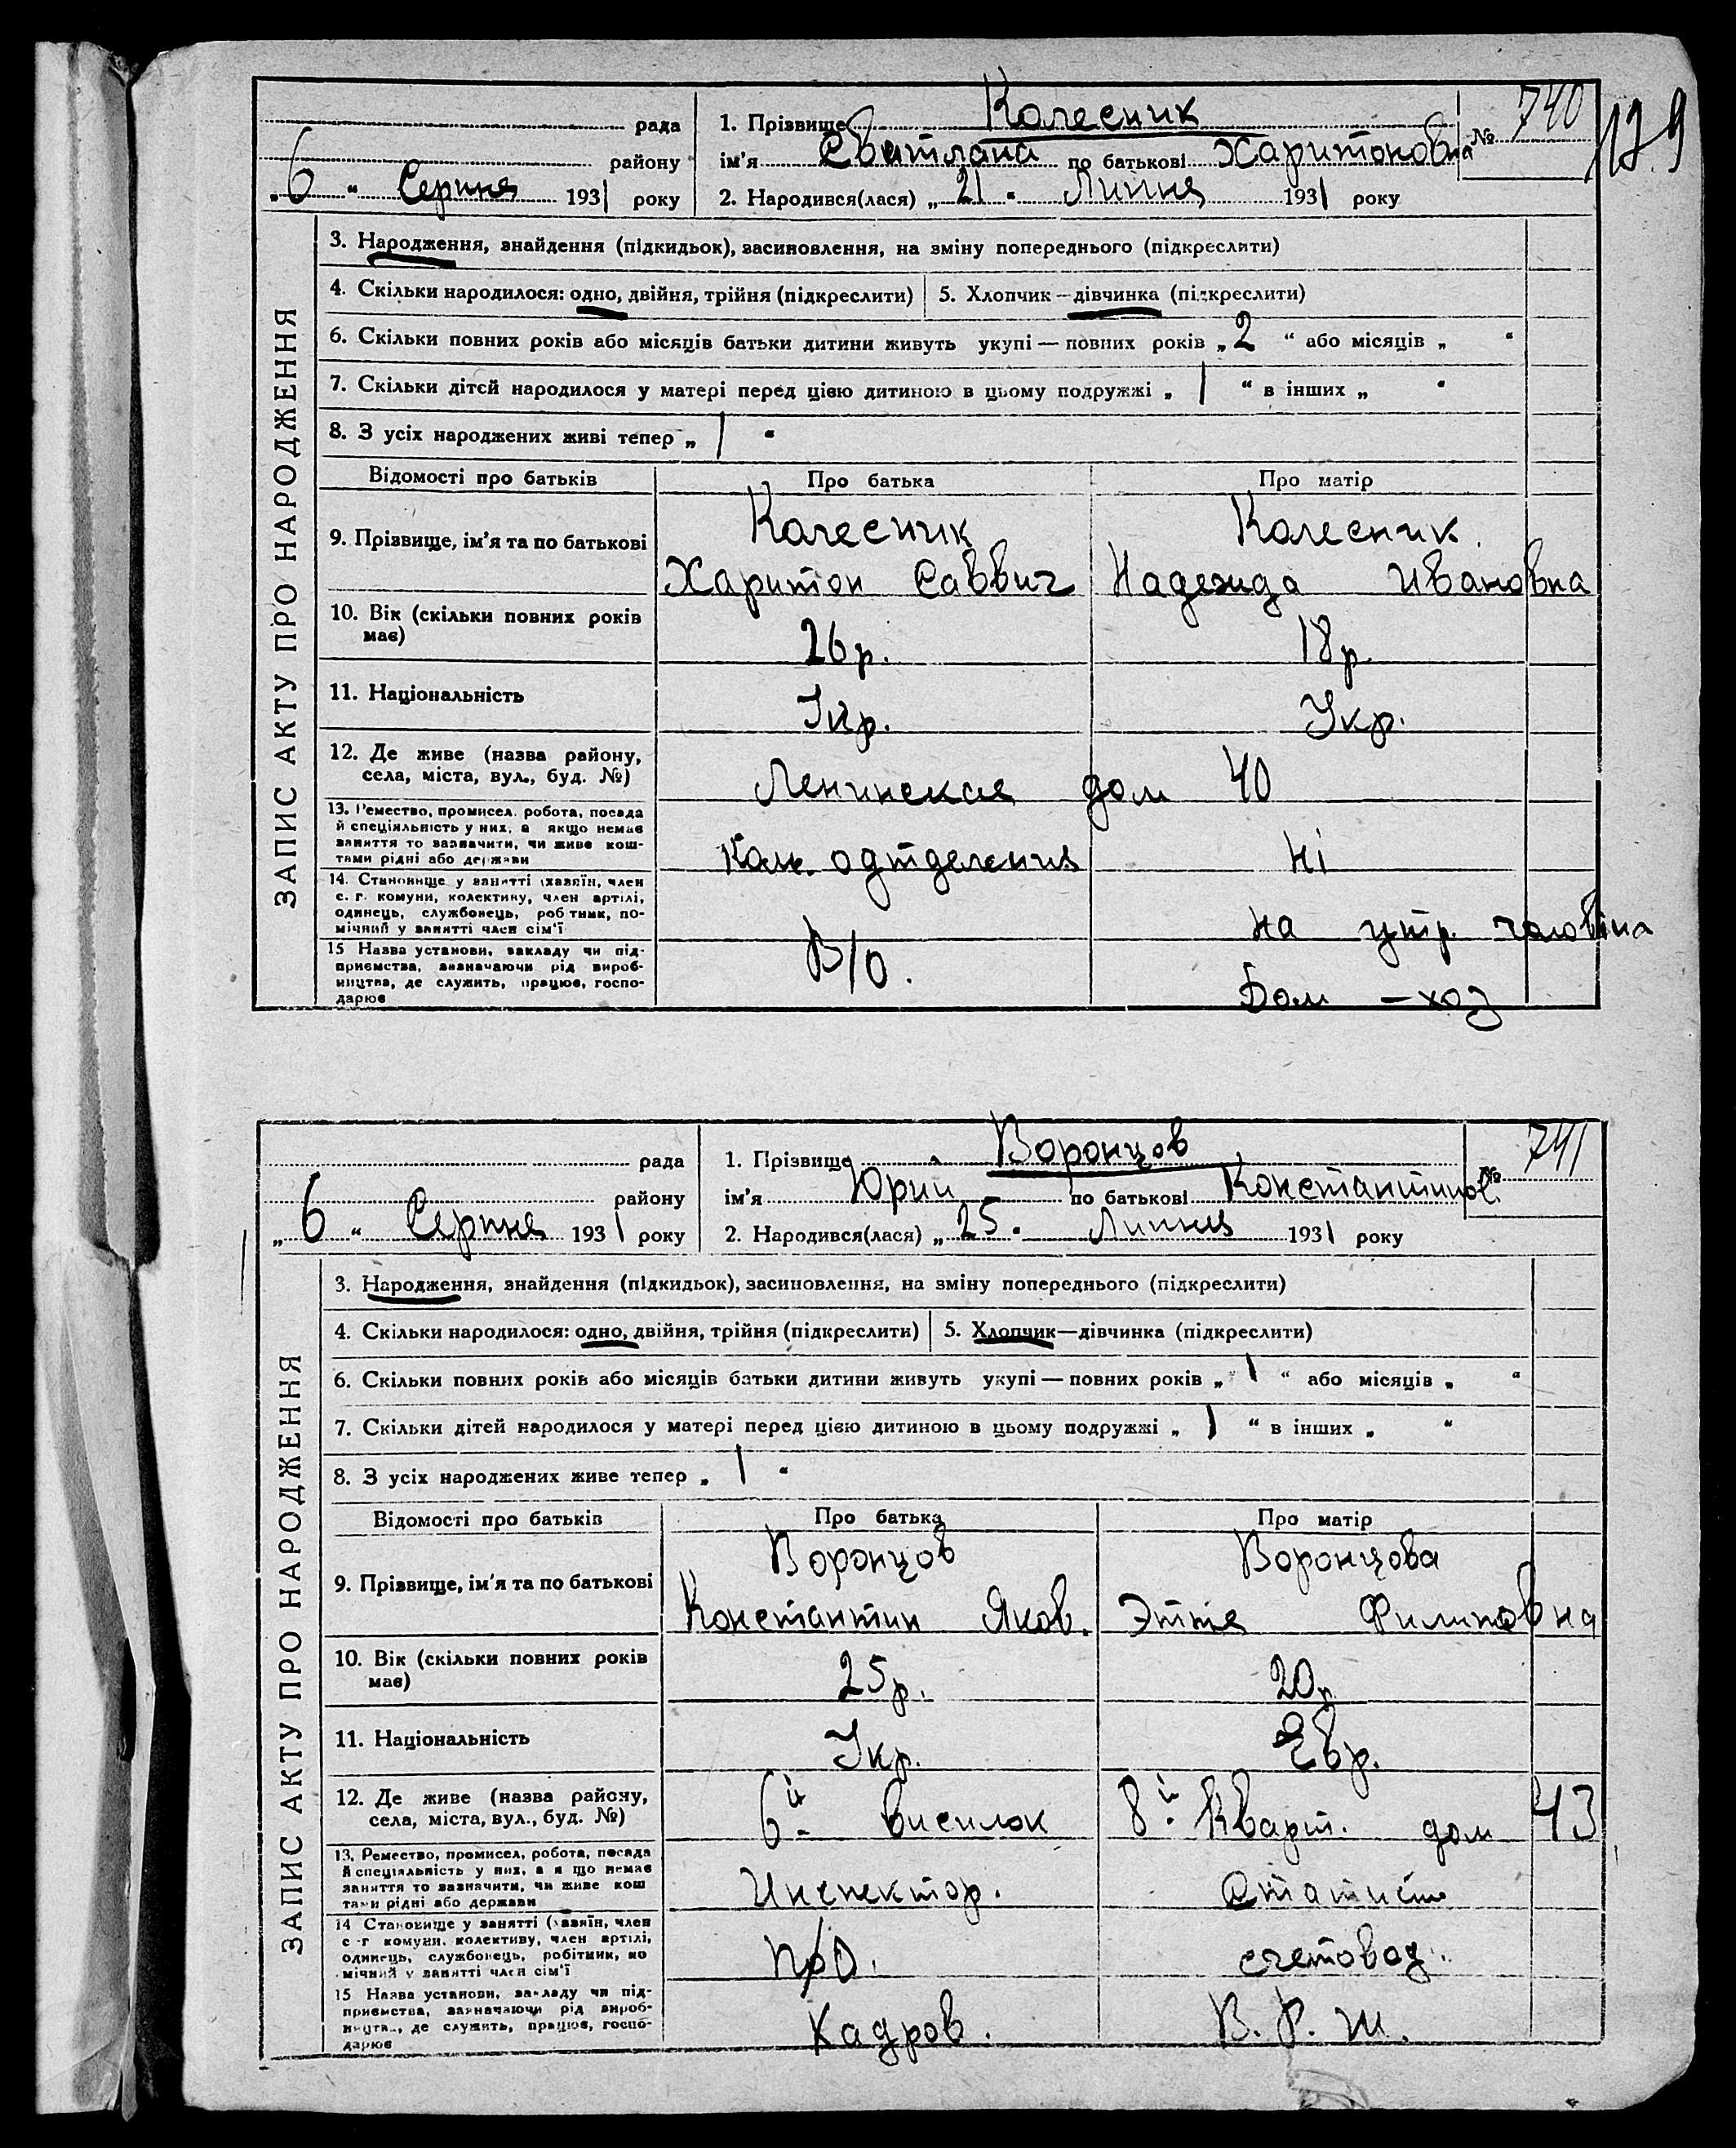 740
129
рада 1. Прізвище Колесник №
району ім'я Свитлана по батькові Харитоновна
„ 6 “ Серпня 1931 року 2. Народився(лася) „ 21 “ Липня 1931 року
ЗАПИС АКТУ ПРО НАРОДЖЕННЯ
3. Народження, знайдення (підкидьок), засиновлення, на зміну попереднього (підкреслити)
4. Скільки народилося: одно, двійня, трійня (підкреслити) 5. Хлопчик—дівчинка (підкреслити)
6. Скільки повних років або місяців батьки дитини живуть укупі — повних років „ 2 “ або місяців „ “
7. Скільки дітей народилося у матері перед цією дитиною в цьому подружжі „ 1 “ в інших „ “
8. З усіх народжених живі тепер „ 1 “
Відомості про батьків Про батька Про матір
Колесник Колесник
9. Прізвище, ім'я та по батькові
Харитон Саввич Надежда Ивановна
10. Вік (скільки повних років
має) 26р. 18р.
11. Національність Укр. Укр.
12. Де живе (назва району,
села, міста, вул., буд. №) Ленинская дом 40
13. Ремество, промисел, робота, посада
й спеціяльність у них, а якщо немає
заняття то зазначити, чи живе кош-
тами рідні або держави одтделения Ні
14. Становище у занятті (хазяїн, член
с. г. комуни, колективу, член артілі,
одинець, службовець, робітник, по-
мічний у занятті член сім'ї на утр. чоловіка
15 Назва установи, закладу чи під-
приємства, зазначаючи рід вироб-
ництва, де служить, працює, госпо-
дарює В/О. Дом - хоз
741
рада 1. Прізвище Воронцов №
району ім'я Юрий по батькові Константинов.
„ 6 “ Серпня 1931 року 2. Народився(лася) „ 25 “ Липня 1931 року
ЗАПИС АКТУ ПРО НАРОДЖЕННЯ
3. Народження, знайдення (підкидьок), засиновлення, на зміну попереднього (підкреслити)
4. Скільки народилося: одно, двійня, трійня (підкреслити) 5. Хлопчик—дівчинка (підкреслити)
6. Скільки повних років або місяців батьки дитини живуть укупі — повних років „ 1 “ або місяців „ “
7. Скільки дітей народилося у матері перед цією дитиною в цьому подружжі „ 1 “ в інших „ “
8. З усіх народжених живе тепер „ 1 “
Відомості про батьків Про батька Про матір
Воронцов Воронцова
9. Прізвище, ім'я та по батькові
Константин Яков. Этля Филиповна
10. Вік (скільки повних років
має) 25р. 20р
11. Національність Укр. Евр.
12. Де живе (назва району,
села, міста, вул., буд. №) 6й висилок 8й Кварт. дом 43
13. Ремество, промисел, робота, посада
й спеціяльність у них, а якщо немає
заняття то зазначити, чи живе кош
тами рідні або держави Инспектор. Статист
14 Становище у занятті (хазяїн, член
с-г комуни, колективу, член артілі,
одинець, службовець, робітник, по
мічний у занятті член сім'ї П/О. счетовод.
15 Назва установи, закладу чи під-
приємства, зазначаючи рід вироб-
ництва, де служить, працює, госпо-
дарює Кадров. В. Р. Ш.